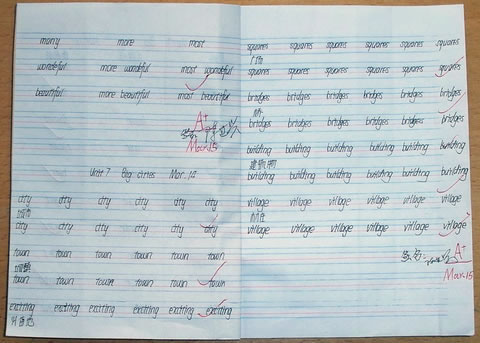 many more most
wonderful more wondeful most wondeful
beautiful more beautiful most beautiful
A+
Mar.15
Unit 7 Big cities Mar. 14
city city city city city city
城市
city city city city city city
town town town town town town
城镇
town town town town town town
exciting exciting exciting exciting exciting exciting
squares squares squares squares squares squares
广场
squares squares squares squares squares squares
bridges bridges bridges bridges bridges bridges
桥
bridges bridges bridges bridges bridges bridges
building building building building building building
建筑物
building building building building building building
village village village village village village
村庄
village village village village village village
A+
Mar.15